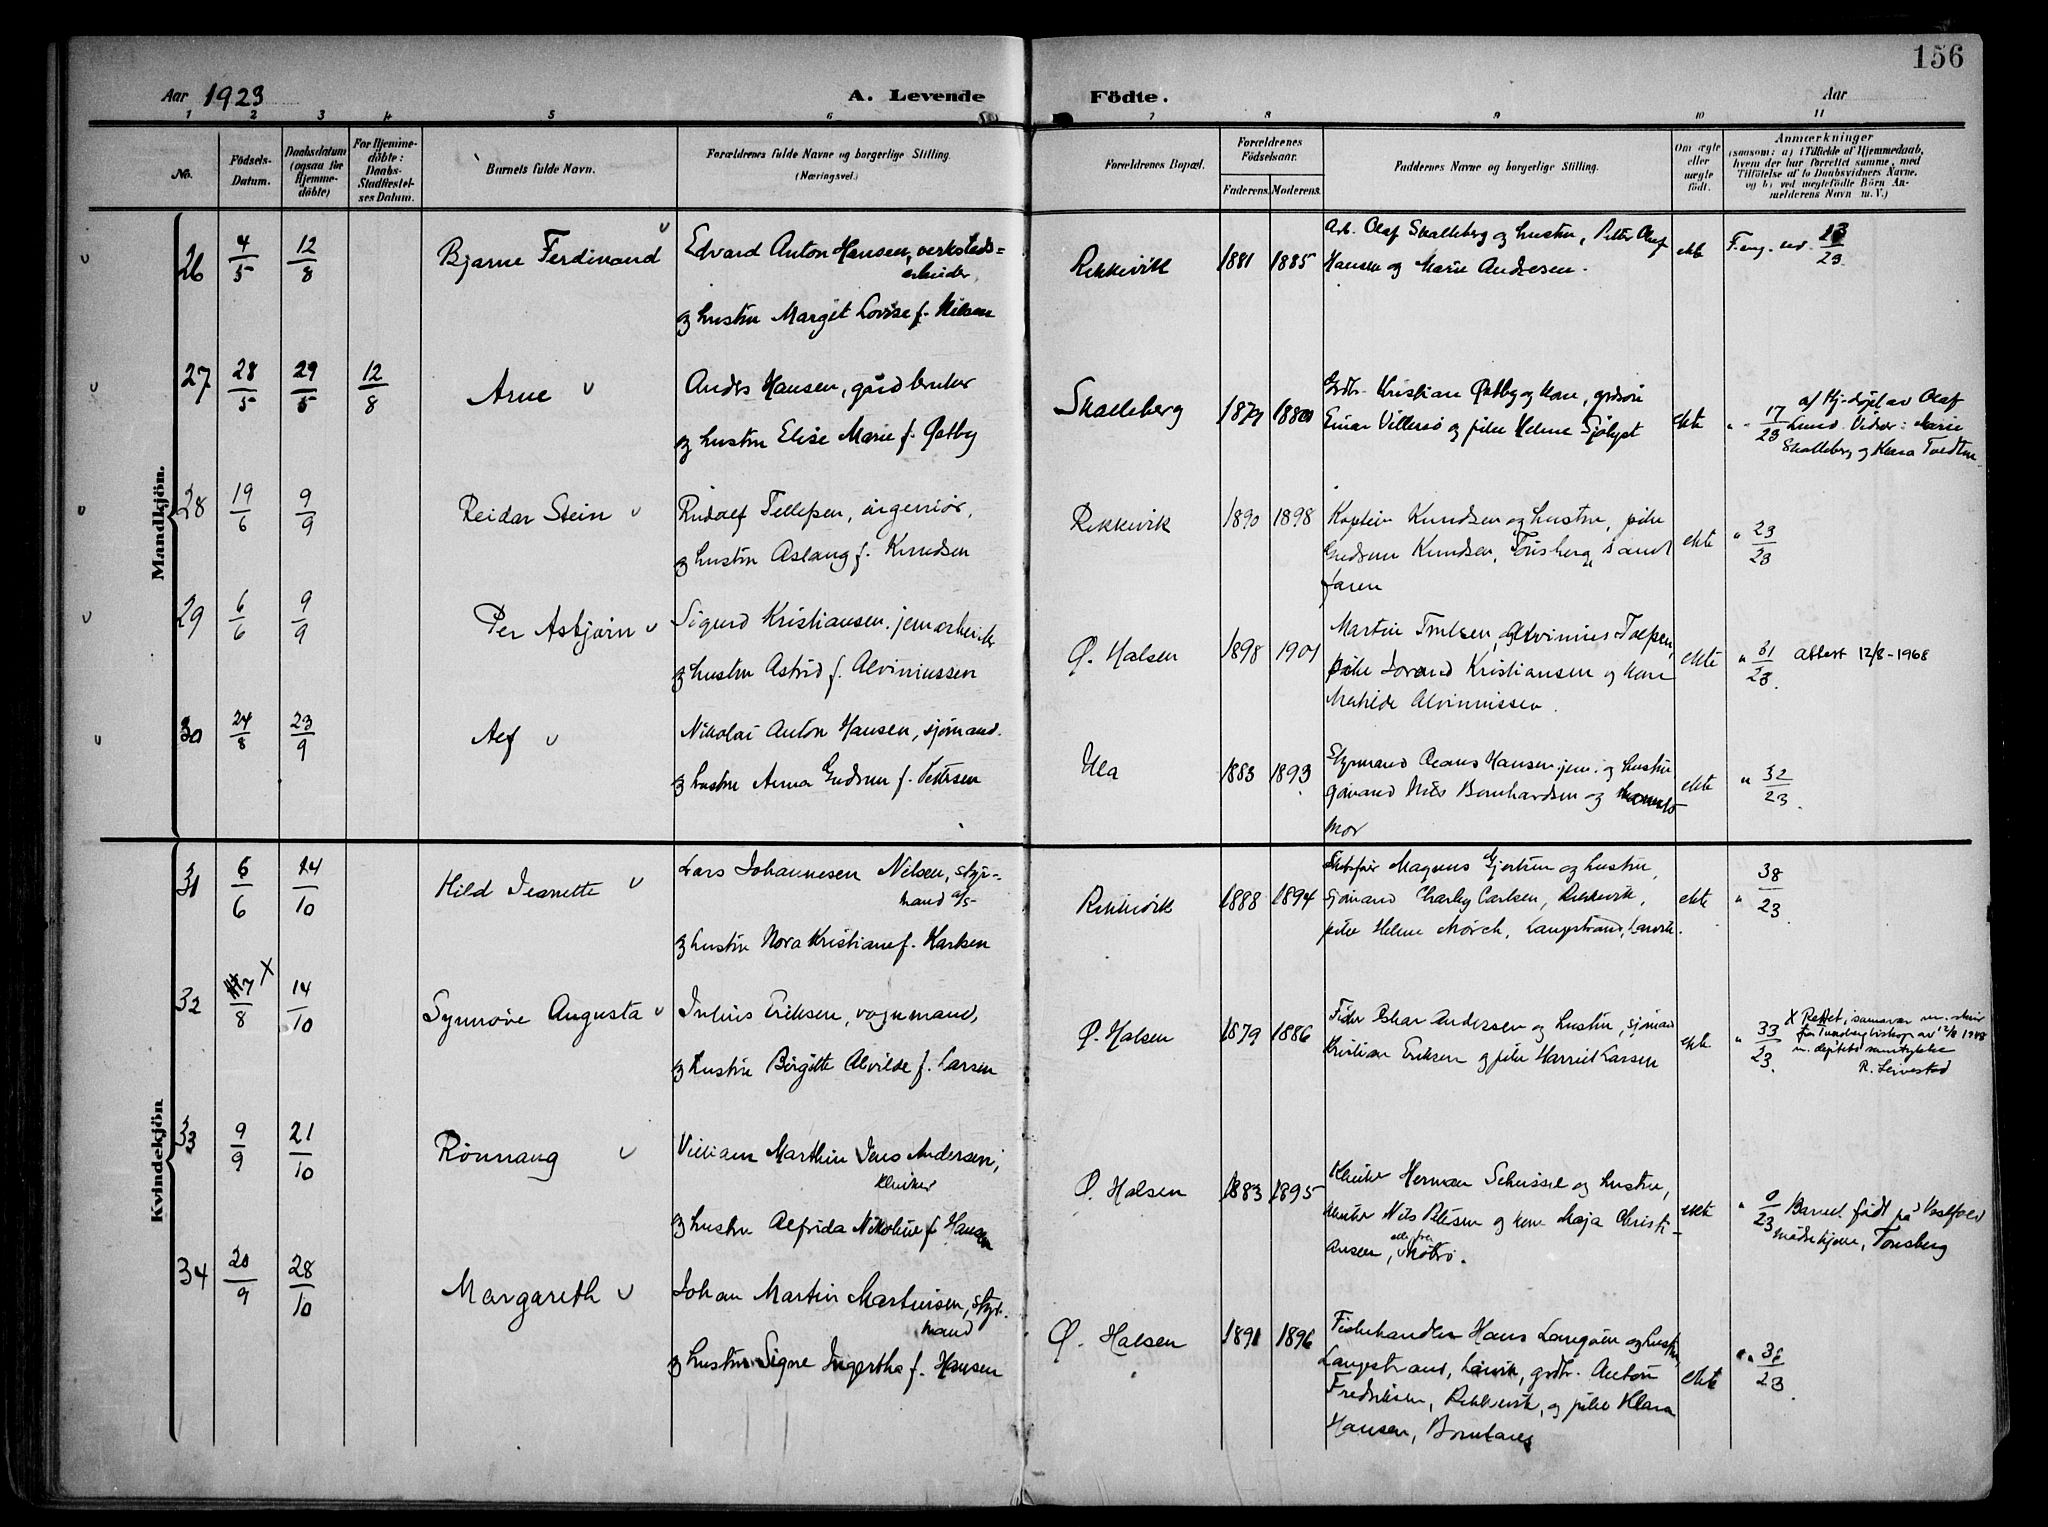 156
Aar 1923
A. Levende Födte.
Aar
1 2 3 4 5 6 7 8 9 10 11
No.
Födsels-
Datum.
Daabsdatum
(ogsaa for
Hjemme-
döbte)
For Hjemme-
döbte:
Daabs-
Stadfæstel-
ses Datum.
Barnets fulde Navn.
Forældrenes fulde Navne og borgerlige Stilling.
(Næringsvei.)
Forældrenes Bopæl.
Forældrenes
Födselsaar.
Faderens. Moderens.
Faddernes Navne og borgerlige Stilling.
Om ægte
eller
uægte
födt.
Anmærkninger
(saasom: a) i Tilfælde af Hjemmedaab,
hvem der har forrettet samme, med
Tilföielse af to Daabsvidners Navne,
og b) ved uægtefödte Börn An-
mælderens Navn m. V.)
Mandkjön.
26 4/5 12/8 Bjarne Ferdinand
Edvard Anton Hansen, verksteds-
arbeider,
og hustru Margit Lovise f. Nilsen
Rekkevik 1881 1885
Arb. Olaf Skalleberg og hustru, Petter Olaf
Hansen og Marie Andresen.
ekte
F. eng. ved. 13/23.
27 28/5 29/5 12/8 Arne
Anders Hansen, gårdbruker
og hustru Elise Marie f. Østby
Skalleberg 1879 1880
Grdbr. Kristian Østby og kone, grdsøn
Einar Villersø og pike Helene Sjølyst
ekte
" 17/23 af Hj. døpt av Olaf
Lund. Vidner: Marie
Skalleberg og Klara Tvedten.
28 19/6 9/9 Reidar Stein
Rudolf Tellefsen, ingeniør,
og hustru Aslaug f. Knudsen
Rekkevik 1890 1898
Kaptein Knudsen og hustru, pike
Gudrun Knudsen, Tønsberg, samt
faren
ekte " 23/23
29 6/6 9/9 Per Asbjørn
Sigurd Kristiansen, jernarbeider
og hustru Astrid f. Alviniussen
Ø. Halsen 1898 1901
Martin Trulsen, Alvinius Tollefsen,
pike Lovand Kristiansen og kone
Mathilde Alviniussen.
ekte " 31/23. Attest 12/8-1968
30 24/8 23/9 Alf
Nikolai Anton Hansen, sjømand.
og hustru Anna Gudrun f. Pettersen
Ula 1883 1893
Styrmand Claus Hansen jun. og hustru
sjømand Nils Bernhardsen og barnets
mor
ekte " 32/23.
Kvindekjön
31 6/6 14/10 Hild Jeanette
Lars Johannesen Nilsen, styr-
mand a/s
og hustru Nora Kristiane f. Karlsen
Rekkevik 1888 1894
Skibsfør Magnus Gjertsen og hustru,
sjømand Charley Carlsen, Rekkevik,
pike Helene Mørch, Langestrand, Larvik.
ekte " 38/23
32 17/8 X 14/10 Synnøve Augusta
Julius Eriksen, vognmand,
og hustru Birgitte Alvilde f. Larsen
Ø. Halsen 1879 1886
Fisker Oskar Andersen og hustru, sjømand
Kristian Eriksen og pike Harriet Larsen
ekte " 33/23.
X Rettet, samsvar m. skriv
fra Tunsberg biskop av 12/8 1948
m. dept.s samtykke
R. Leivestad
33 9/9 21/10 Rönnaug
Villiam Marthin Jens Andersen,
klinker
og hustru Alfrida Nikoline f. Hansen
Ø. Halsen 1883 1895
Klinker Herman Scheissel og hustru,
klinker Nils Petersen og kone Maja Christi-
ansen, alle fra Nøtrø.
ekte
" 0/23 Barnet født på Vestfold
mødrehjem, Tønsberg
34 20/9 28/10 Margareth
Johan Martin Martinsen, styr-
mand
og hustru Signe Ingertha f. Hansen
Ø. Halsen 1891 1896
Fiskehandler Hans Langøen og hustru,
Langestrand, Larvik, grdbr. Anton
Fredriksen, Rekkevik, og pike Klara
Hansen, Bommanes
ekte " 36/23.